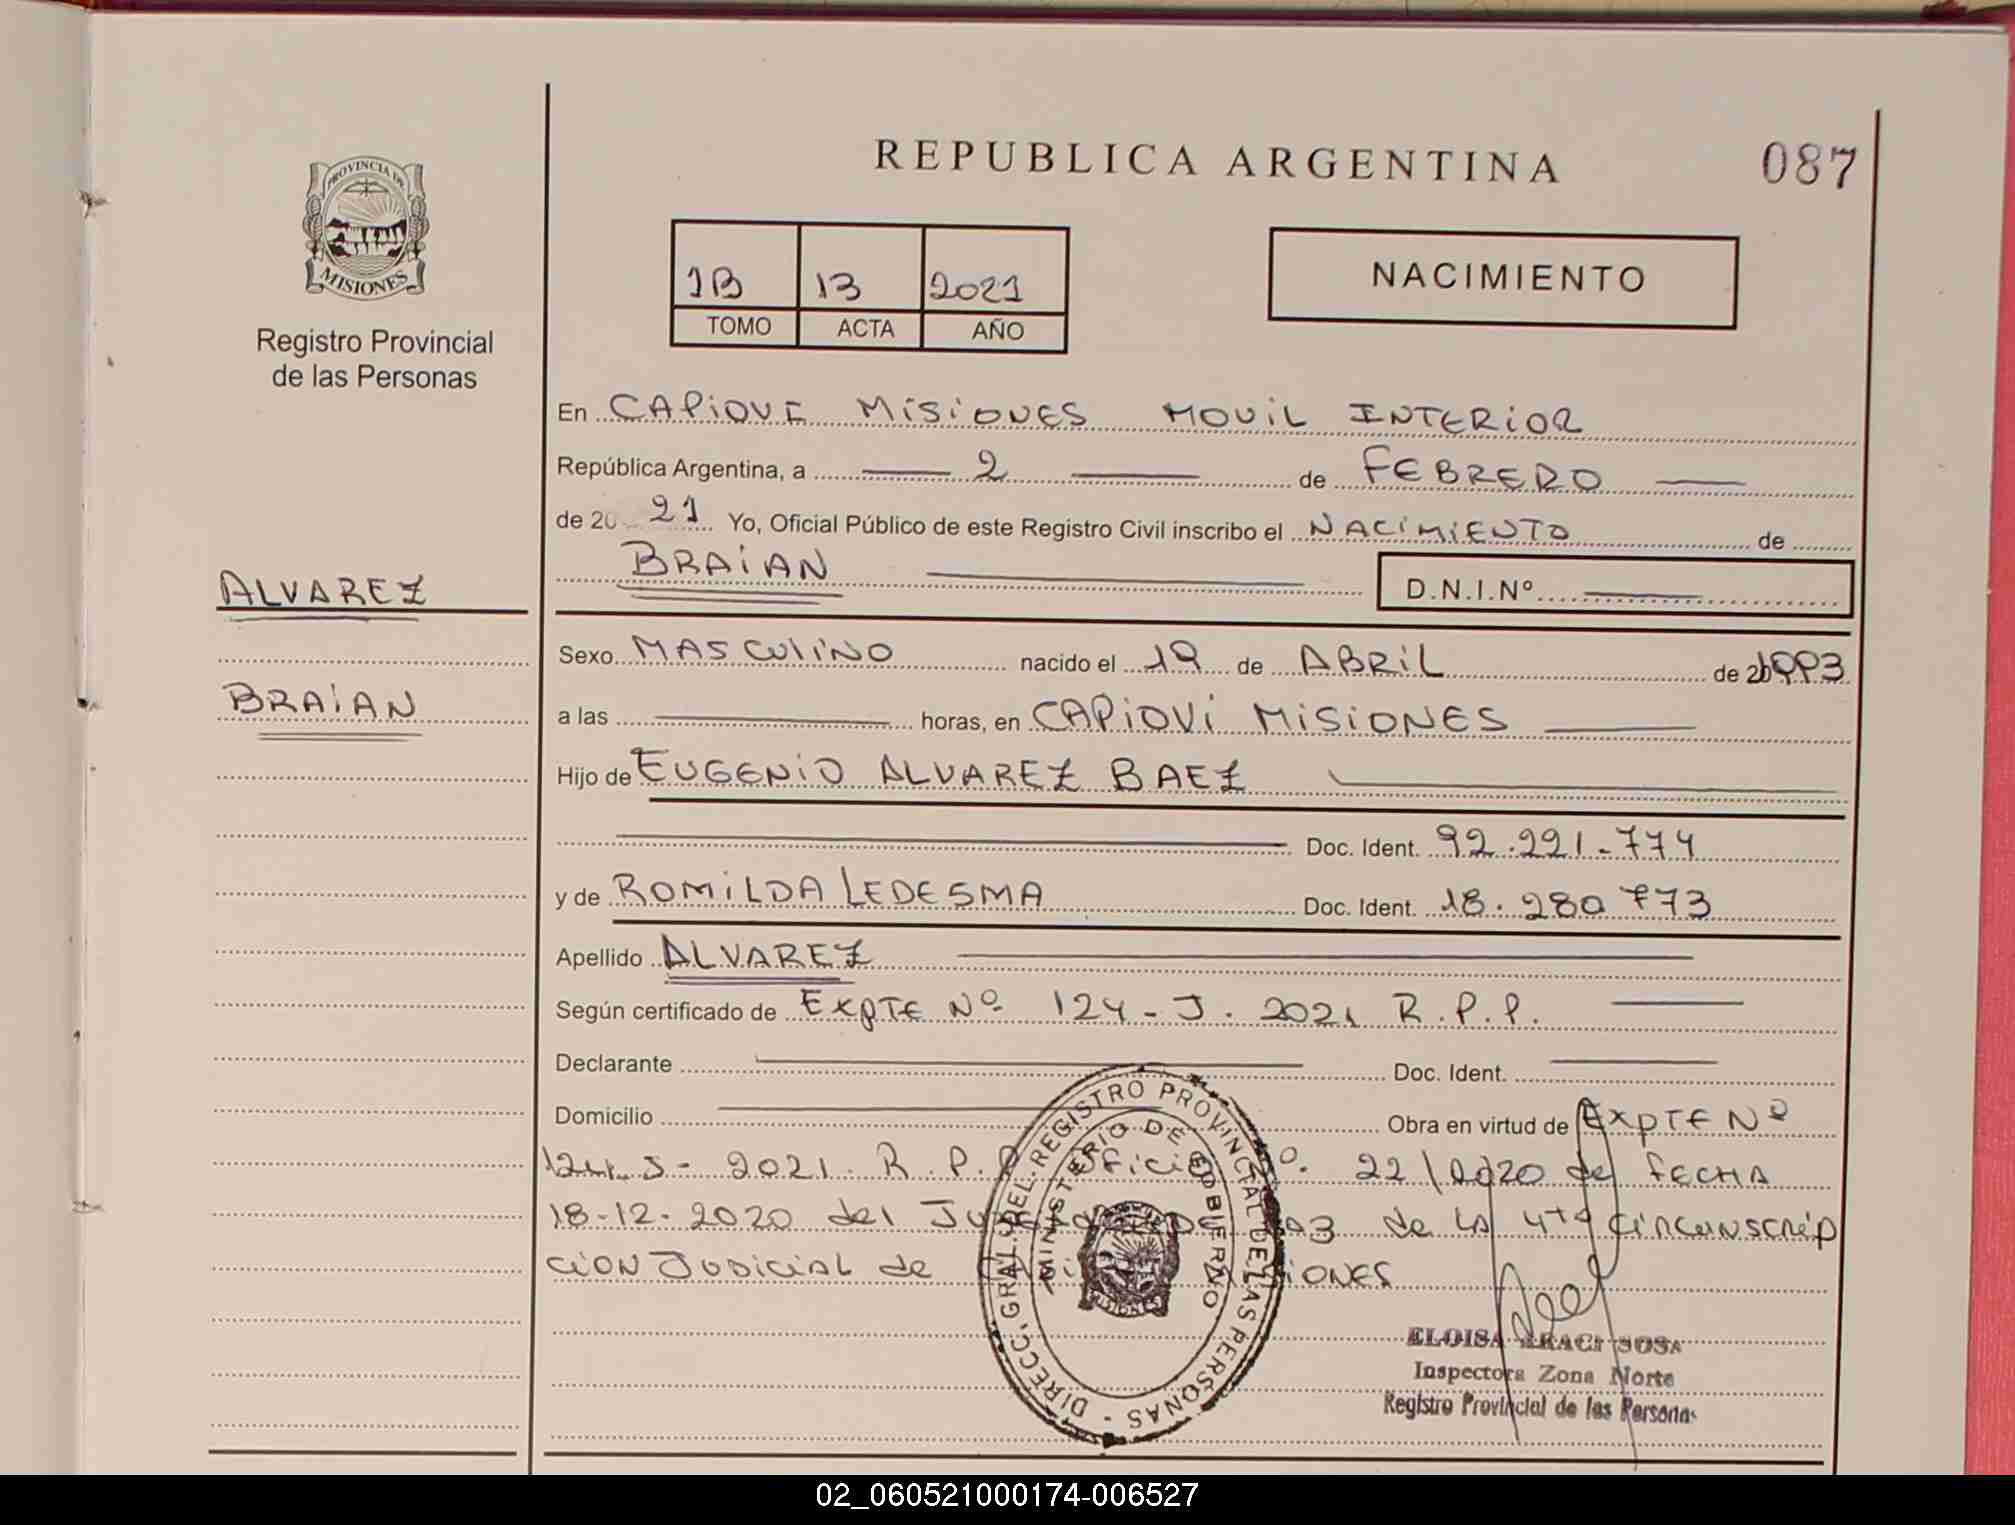 PROVINCIA DE
MISIONES
Registro Provincial
de las Personas
ALVAREZ
BRAIAN
REPUBLICA ARGENTINA
087
1B 13 2021
TOMO ACTA AÑO
NACIMIENTO
En CAPIOVE MISIONES MOVIL INTERIOR
República Argentina, a 2 de FEBRERO
de 20 21 Yo, Oficial Público de este Registro Civil inscribo el NACIMIENTO de
BRAIAN D.N.I.Nº
Sexo MASCULINO nacido el 19 de ABRIL de 1993
a las horas, en CAPIOVI MISIONES
Hijo de EUGENIO ALVAREZ BAEZ
Doc. Ident. 92.221.774
y de ROMILDA LEDESMA Doc. Ident. 18.280 773
Apellido ALVAREZ
Según certificado de EXPTE Nº 124-J. 2021 R.P.P.
Declarante Doc. Ident.
Domicilio Obra en virtud de EXPTE Nº
124-J- 2021. R.P.P. Oficio 22/2020 de FECHA
18-12-2020 del de LA 4ta CIRCUNSCRIP
CION JUDICIAL de MISIONES
DIRECC. GRAL. DEL REGISTRO PROVINCIAL DE LAS PERSONAS -
MINISTERIO DE GOBIERNO
MISIONES
ELOISA ARACI SOSA
Inspectora Zona Norte
Registro Provincial de las Personas
02_060521000174-006527